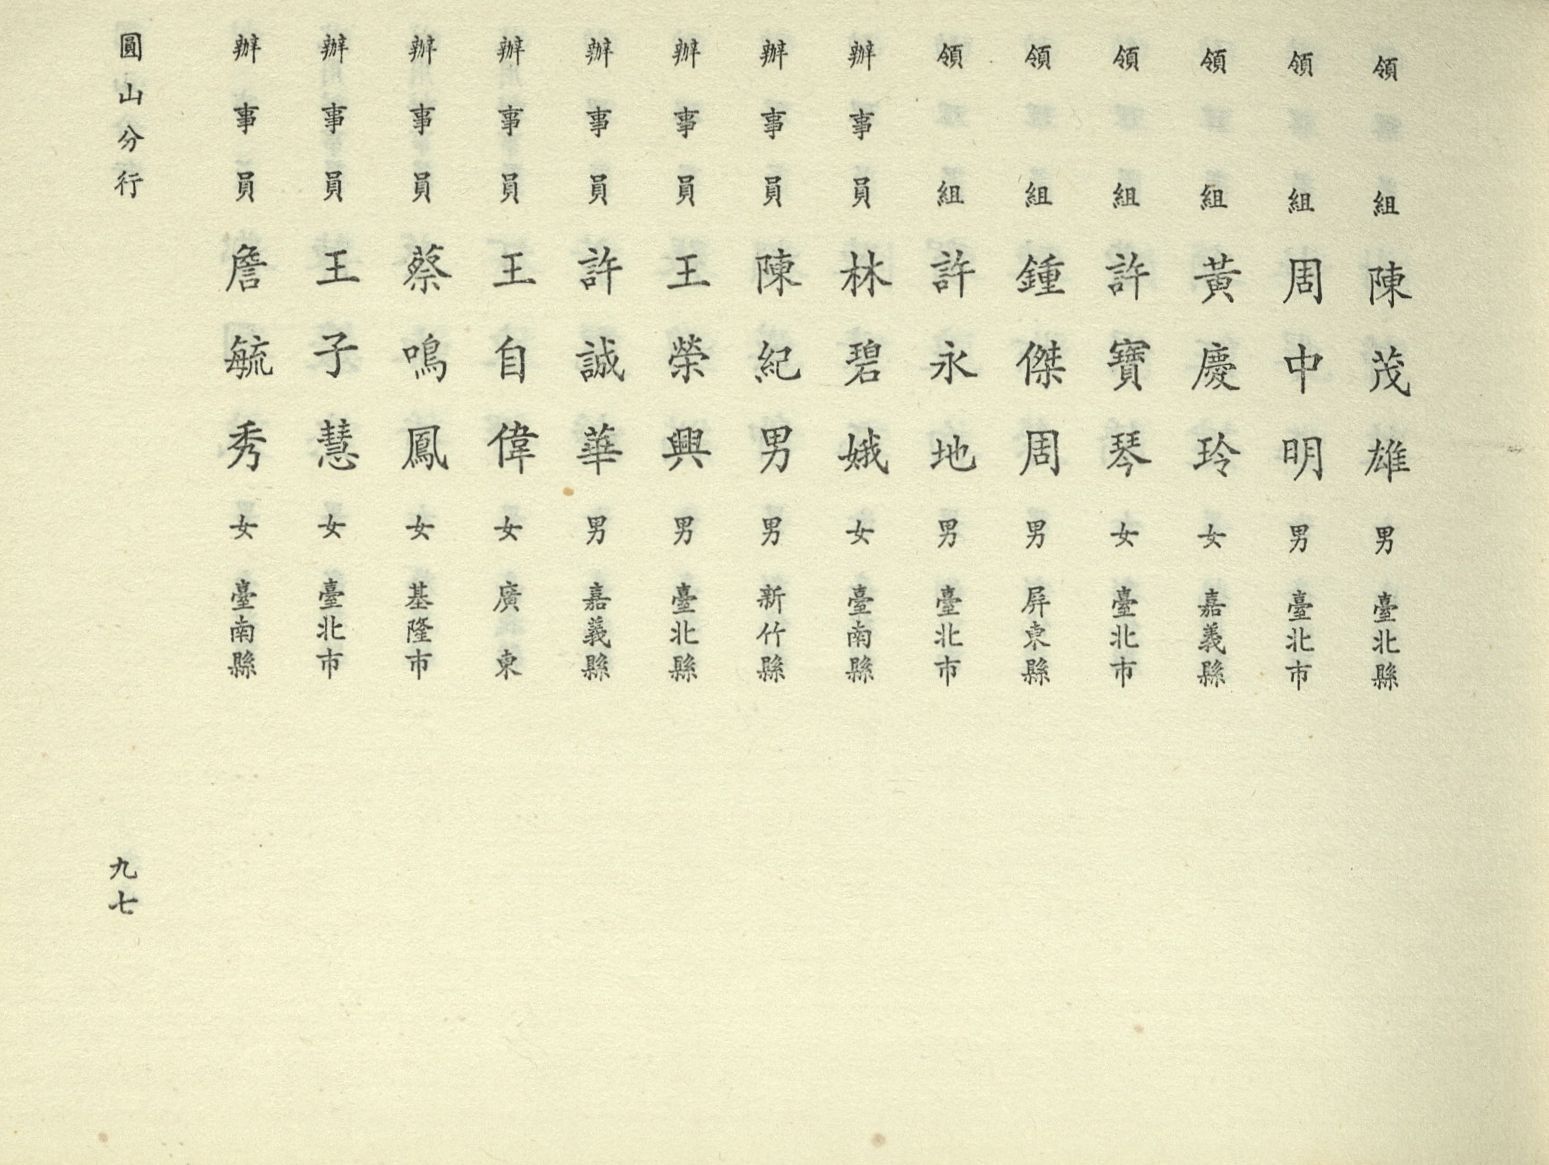 領組 陳茂雄 男 臺北縣
領組 周中明 男 臺北市
領組 黃慶玲 女 嘉義縣
領組 許寶琴 女 臺北市
領組 鍾傑周 男 屏東縣
領組 許永地 男 臺北市
辦事員 林碧娥 女 臺南縣
辦事員 陳紀男 男 新竹縣
辦事員 王榮興 男 臺北縣
辦事員 許誠華 男 嘉義縣
辦事員 王自偉 女 廣東
辦事員 蔡鳴鳳 女 基隆市
辦事員 王子慧 女 臺北市
辦事員 詹毓秀 女 臺南縣
圓山分行
九七